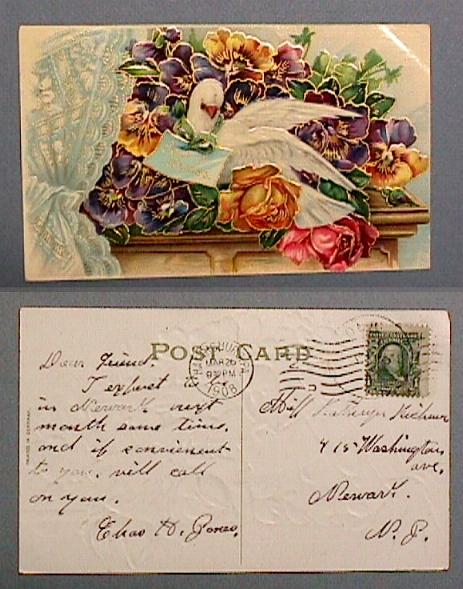 POST CARD
MAR 26
1908
Dear Friend.
I expect to be
in Newark next
month some time.
and if convienent
to you. will call
on you.
Chas H. Jones.
Miss Kathryn
415 Washington
ave,
Newark.
N. J.
PRINTED IN GERMANY